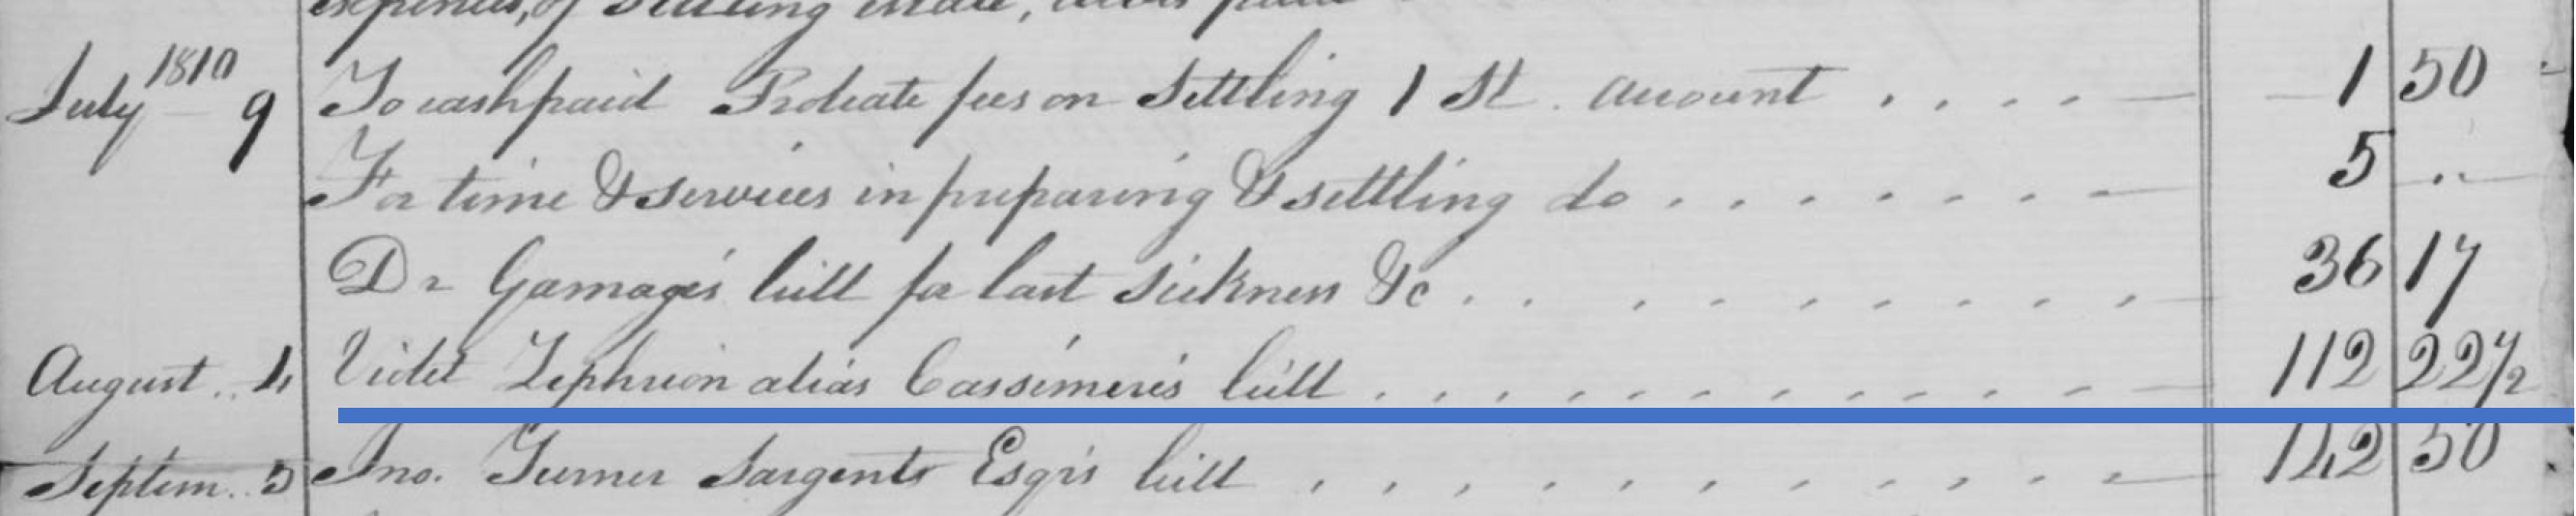 expences, of settling estate, debts paid
July 1810 9 To cash paid Probate fees on settling 1 St. account . . . . — 1 50
For time & services in preparing & settling do . . . . . . . — 5 ..
Dr Gamage's bill for last sickness &c . . . . . . . . . — 36 17
August .. 4 Violet Zephrion alias Cassimere's bill . . . . . . . . . . — 112 22 1/2
Septem. 5 Jno. Turner Sargents Esqrs bill . . . . . . . . . . — 142 50